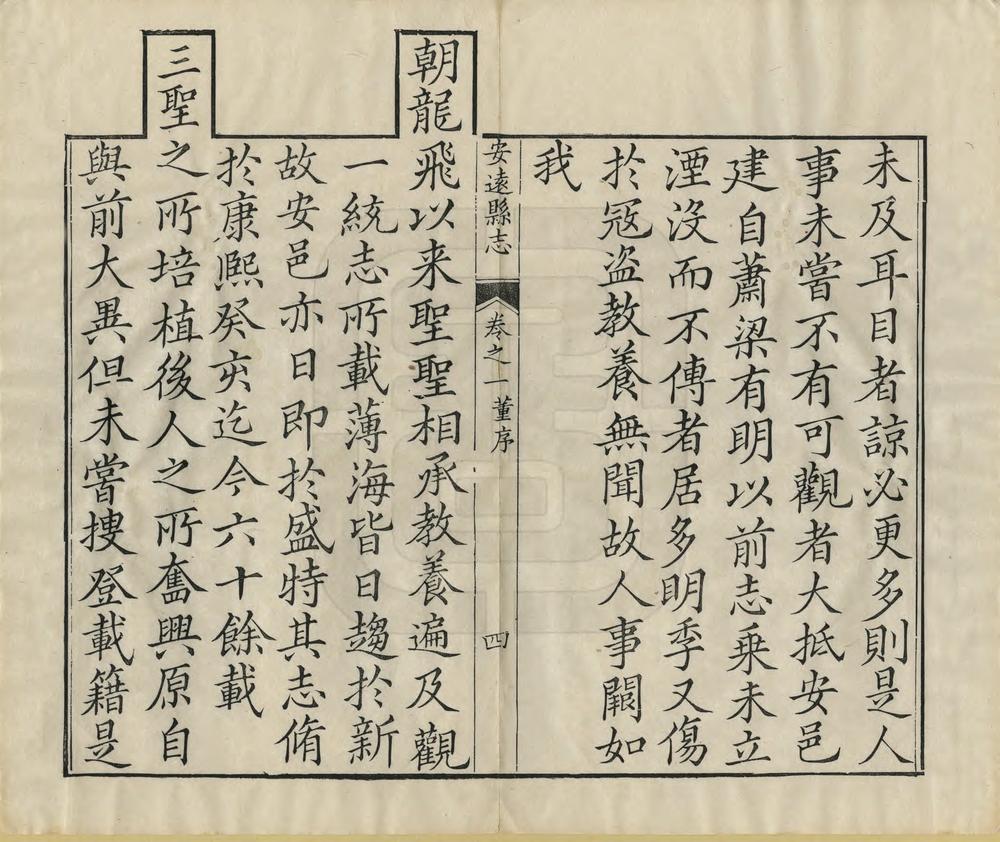 未及耳目者諒必更多則是人
事未嘗不有可觀者大抵安邑
建自蕭梁有明以前志乗未立
湮沒而不傳者居多明季又傷
於冦盗教養無聞故人事闕如
我
安遠縣志 卷之一 董序 四
朝龍飛以来聖聖相承教養遍及觀
一統志所載薄海皆日趨於新
故安邑亦日即於盛特其志脩
於康熈癸亥迄今六十餘載
三聖之所培植後人之所奮興原自
與前大異但未嘗摟登載籍是